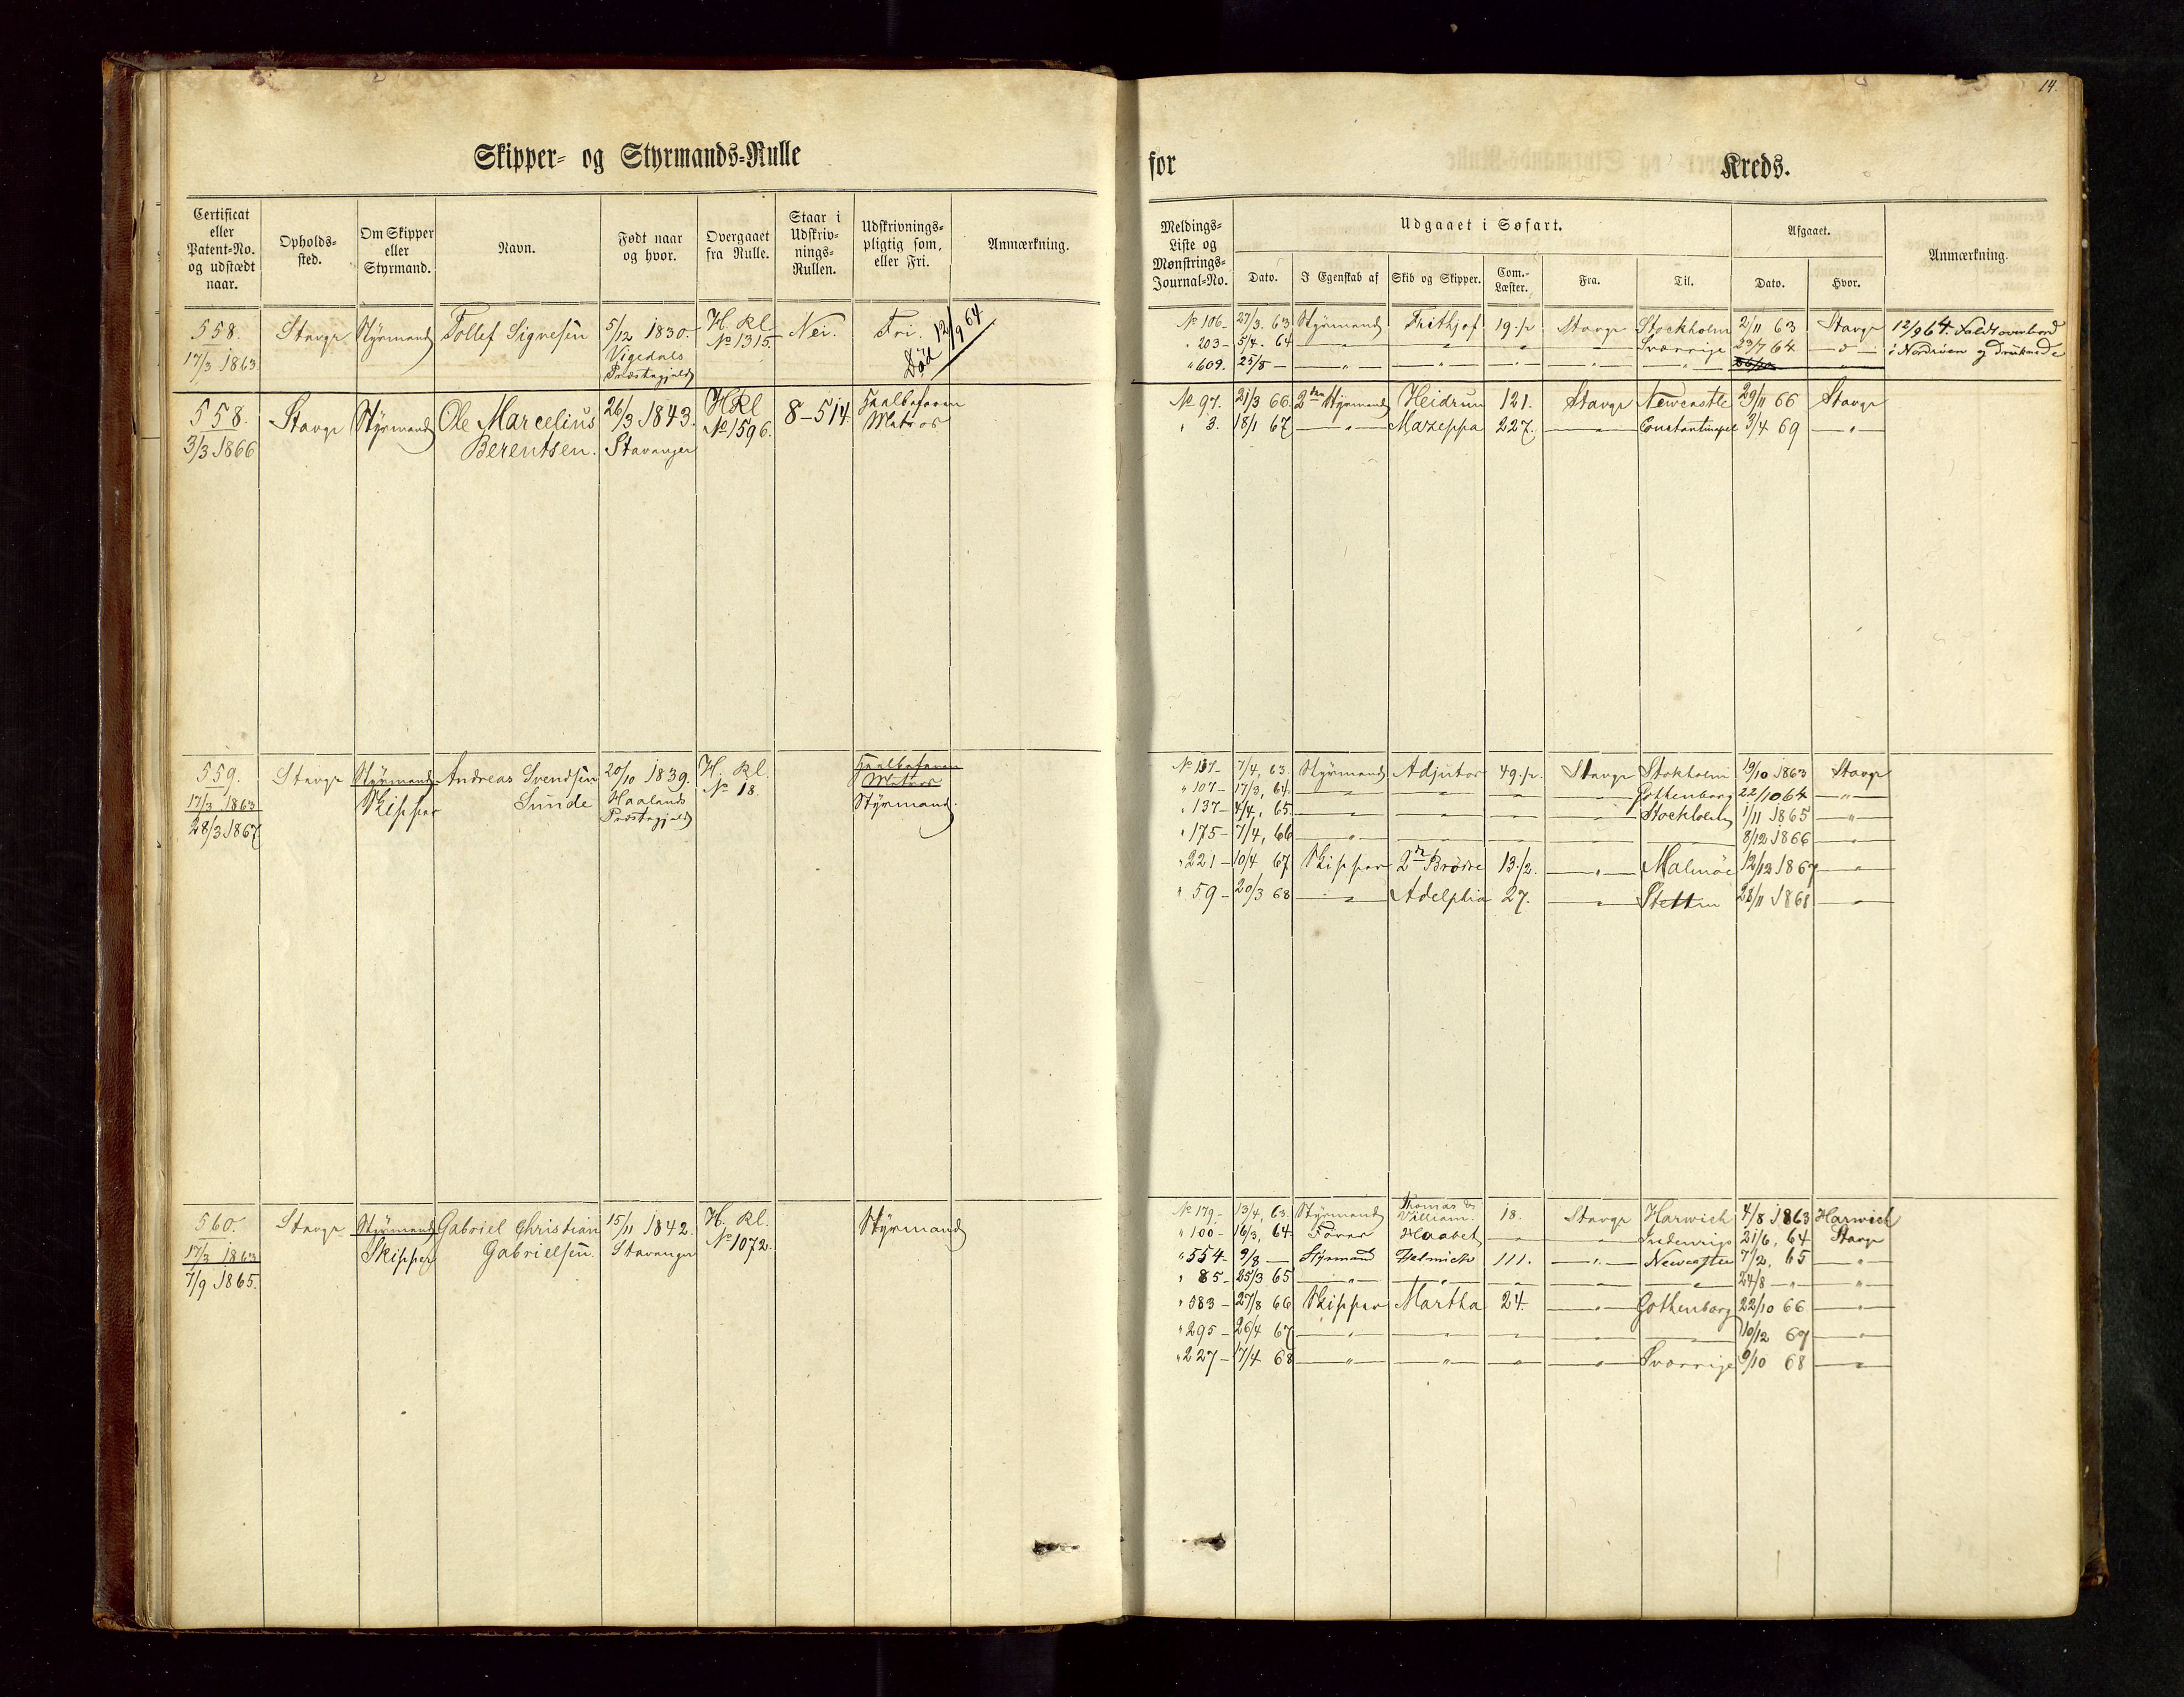 14.
Skipper- og Styrmands-Rulle
for Kreds.
Certificat eller Patent-No. og udstædt naar.
Opholds-sted.
Om Skipper eller Styrmand.
Navn.
Født naar og hvor.
Overgaaet fra Rulle.
Staar i Udskriv-nings-Rullen.
Udskrivnings-pligtig som, eller Fri.
Anmærkning.
Meldings-Liste og Mønstrings-Journal-No.
Udgaaet i Søfart.
Dato.
I Egenskab af
Skib og Skipper.
Com.-Læster.
Fra.
Til.
Afgaaet.
Dato.
Hvor.
Anmærkning.
558. Stavgr Styrmand Tollef Signesen 5/12 1830. H. Rl. Nei. Fri.
17/3 1863 Vigedals No 1315
Præstegjeld Død 12/9 64
No 106- 27/3. 63 Styrmand Frithjof 19 1/2 Stavgr Stockholm 2/11 63 Stavgr 12/9 64. Faldt overbord
" 203- 5/4. 64 — " — " — " — " — Sværrige 23/7 64 — " — i Nordsøen og druknede
" 609. 25/8 — — " — " — " — " — " —
558. Stavgr Styrmand Ole Marcelius 26/3 1843. HRl 8-514. Halvbefaren
3/3 1866 Berentsen. Stavanger No 1596. Matros
No 97. 21/3 66 2den Styrmand Heidrun 121. Stavgr Newcastle 29/11 66 Stavgr
" 3. 18/1 67 — " — Mazeppa 227. — " — Constantinopel 3/4 69 — " —
559. Stavgr Styrmand Andreas Svendsen 20/10 1839. H. Rl. Halvbefaren
17/3 1863 Skipper Sunde Haalands No 18. Matros
28/3 1867 Præstegjeld Styrmand.
No 137- 7/4, 63. Styrmand Adjutor 49 1/2. Stavgr Stokholm 19/10 1863 Stavgr
" 107- 17/3, 64. — " — " — " — " — Gothenborg 22/10 64 — " —
" 137- 4/4, 65. — " — " — " — " — Stockholm 1/11 1865 — " —
" 175- 7/4, 66 — " — " — " — " — 8/12 1866 — " —
" 221- 10/4 67 Skipper 2de Brødre 13 1/2. — " — Malmöe 12/12 1867 — " —
" 59- 20/3 68 — " — Adelphia 27. — " — Stettin 28/11 1868 — " —
560. Stavgr Styrmand Gabriel Christian 15/11 1842. H. Rl. Styrmand
17/3 1863 Skipper Gabrielsen. Stavanger No 1072.
7/9 1865.
No 179.- 13/4, 63. Styrmand Thomas & William. 18. Stavgr Harwich 4/8 1863 Harwich
" 100- 16/3, 64 Fører Haabet — " — " — 21/6, 64 Stavgr
" 554- 9/8 — Styrmand 111. — " — Newcastle 7/2, 65 — " —
" 85- 25/3 65 — " — " — " — " — " — 24/8 — " — " —
" 583- 27/8 66 Skipper Martha 24. — " — Gothenborg 22/10 66 — " —
" 295- 26/4 67 — " — " — " — " — " — 10/12 67 — " —
" 227- 17/4 68 — " — " — " — " — Sværrige 9/10 68 — " —